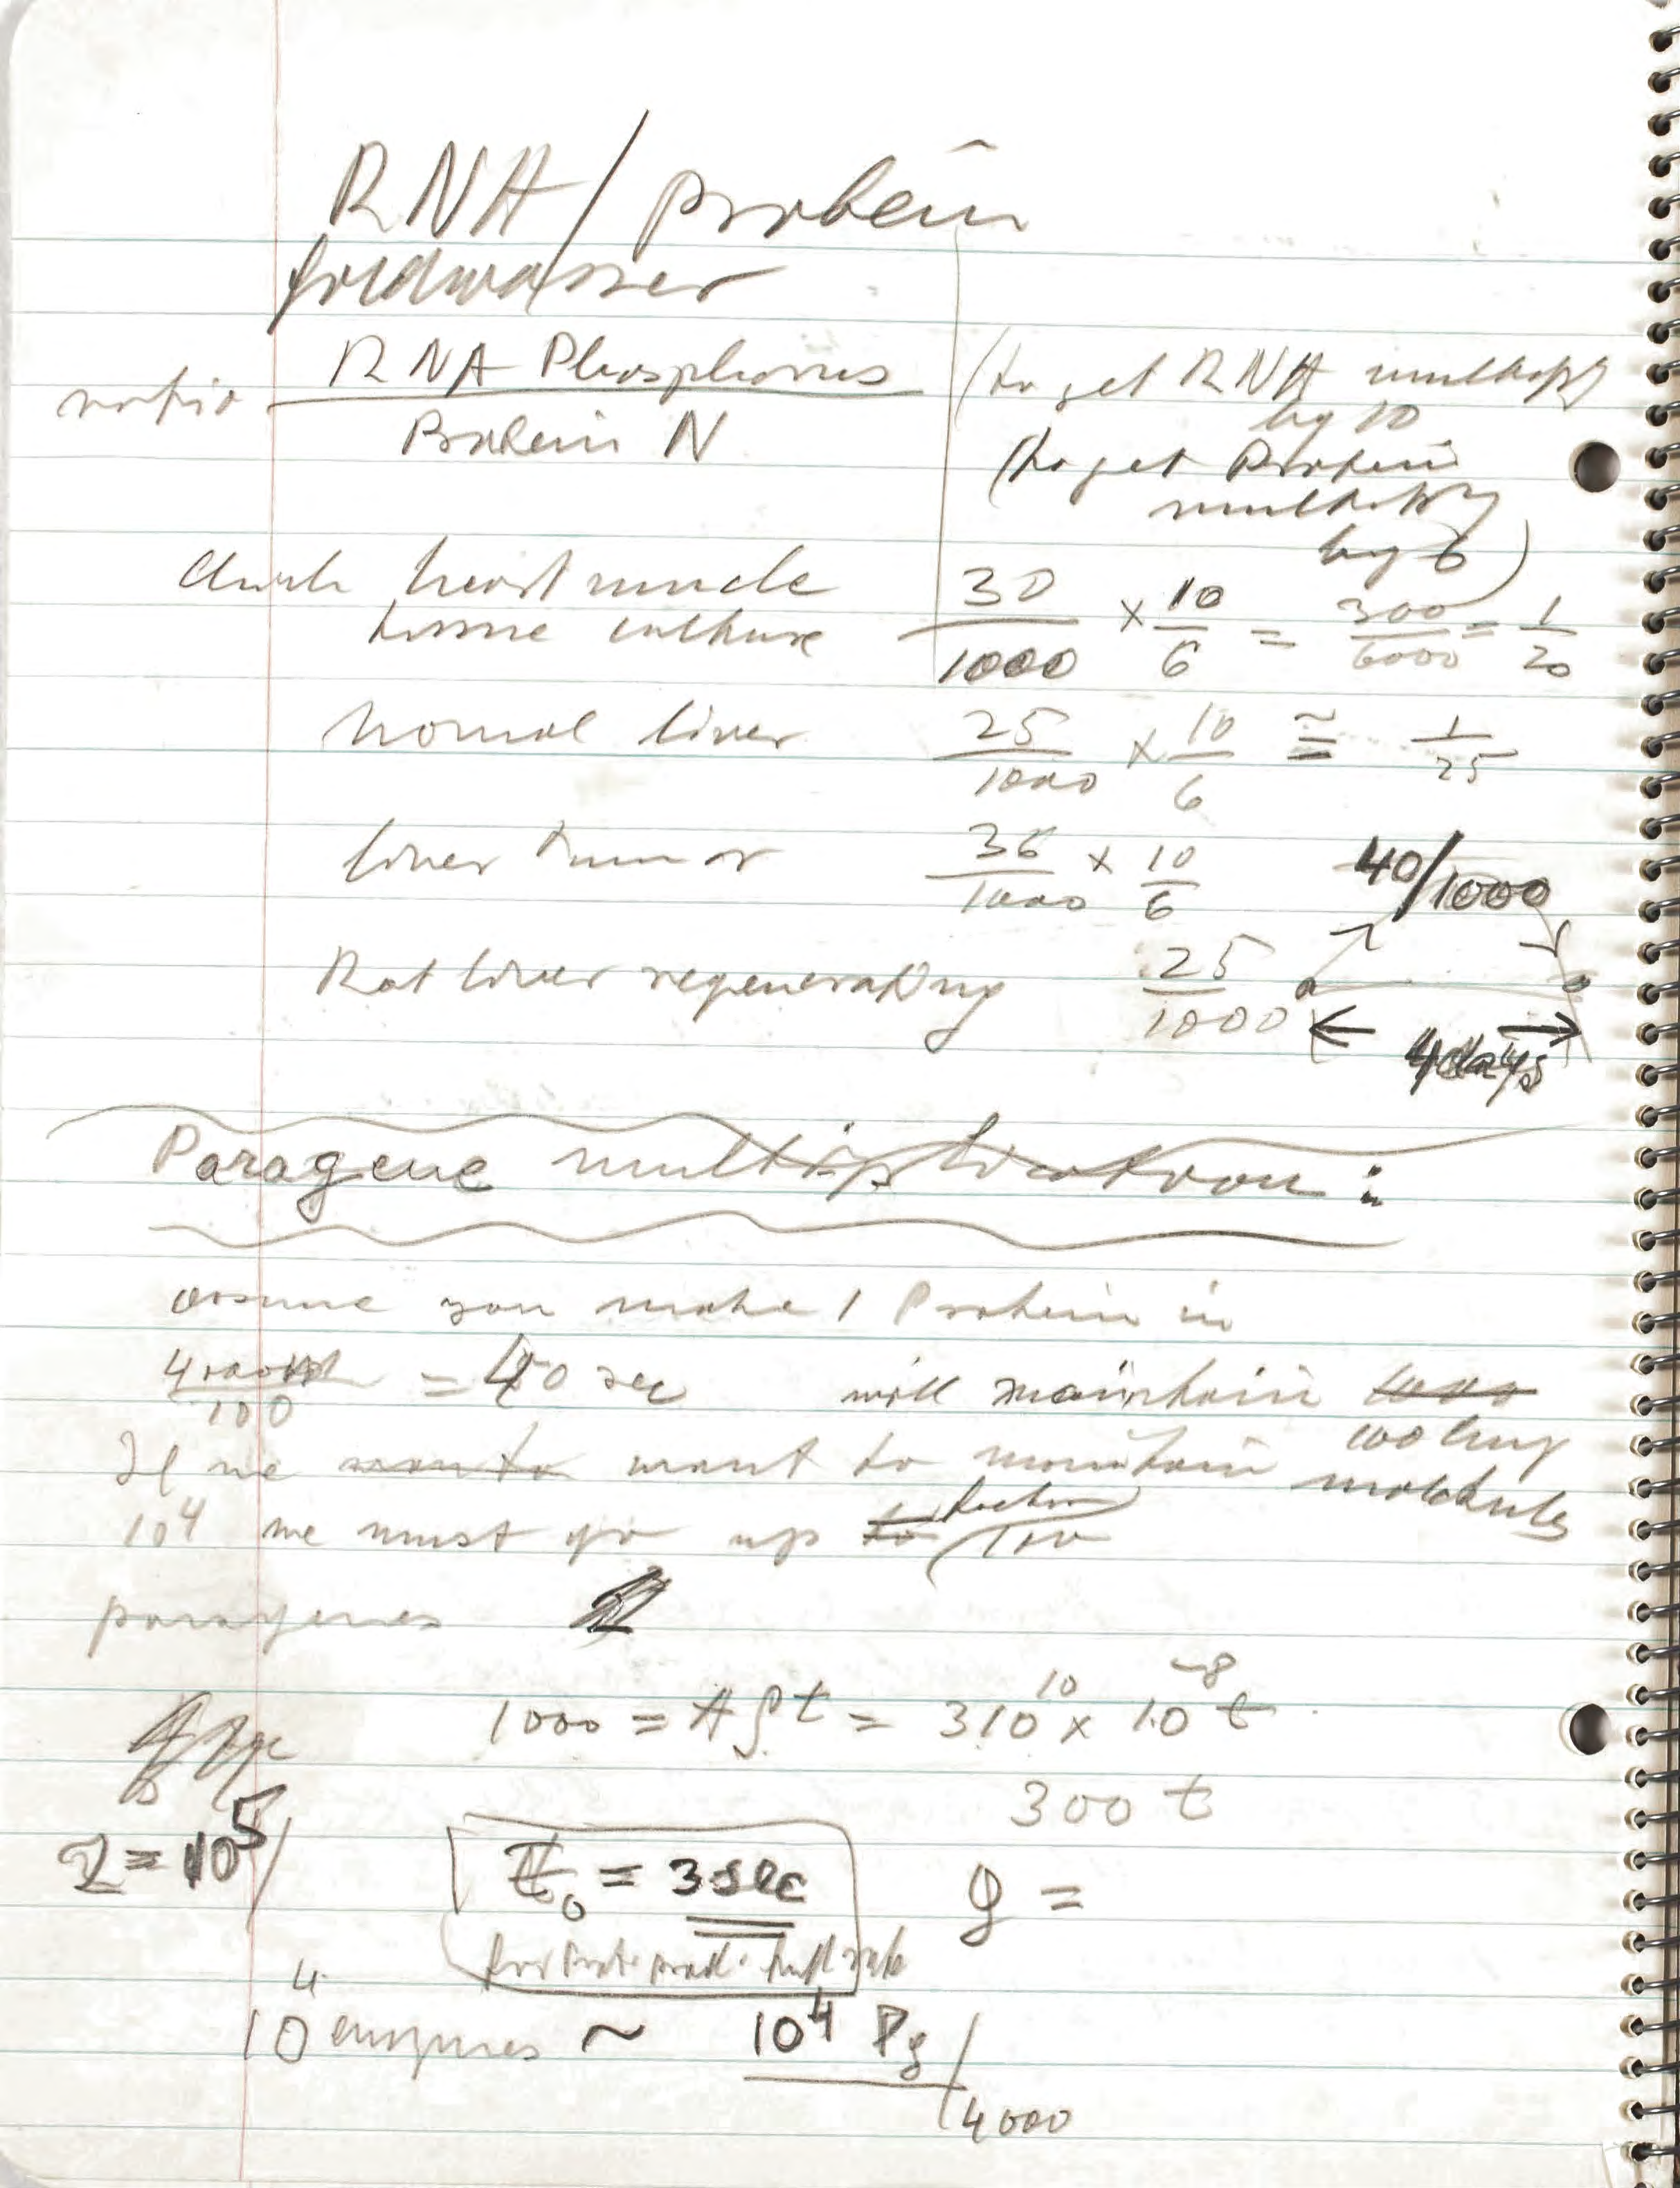 RNA/protein
Goldwasser
ratio RNA Phosphorus / Protein N
(to get RNA multiply
by 10
(to get Protein
multiply
by 6)
heart muscle
tissue culture 30/1000 × 10/6 = 300/6000 = 1/20
Normal liver 25/1000 × 10/6 ≅ 1/25
liver tumor 36/1000 × 10/6
40/1000
Rat liver regenerating 25/1000
4 days
Paragene multiplication:
assume you make 1 Protein in
4000/100 = 40 sec will maintain
If we want to maintain 100 enz
molecules
10⁴ we must go up to factor 100
paragenes
1000 = Aρt = 3 10¹⁰ × 10⁻⁸ t
300 t
= 10⁵
t₀ = 3 sec
ρ =
10⁴ enzymes ~ 10⁴ Pg / 4000